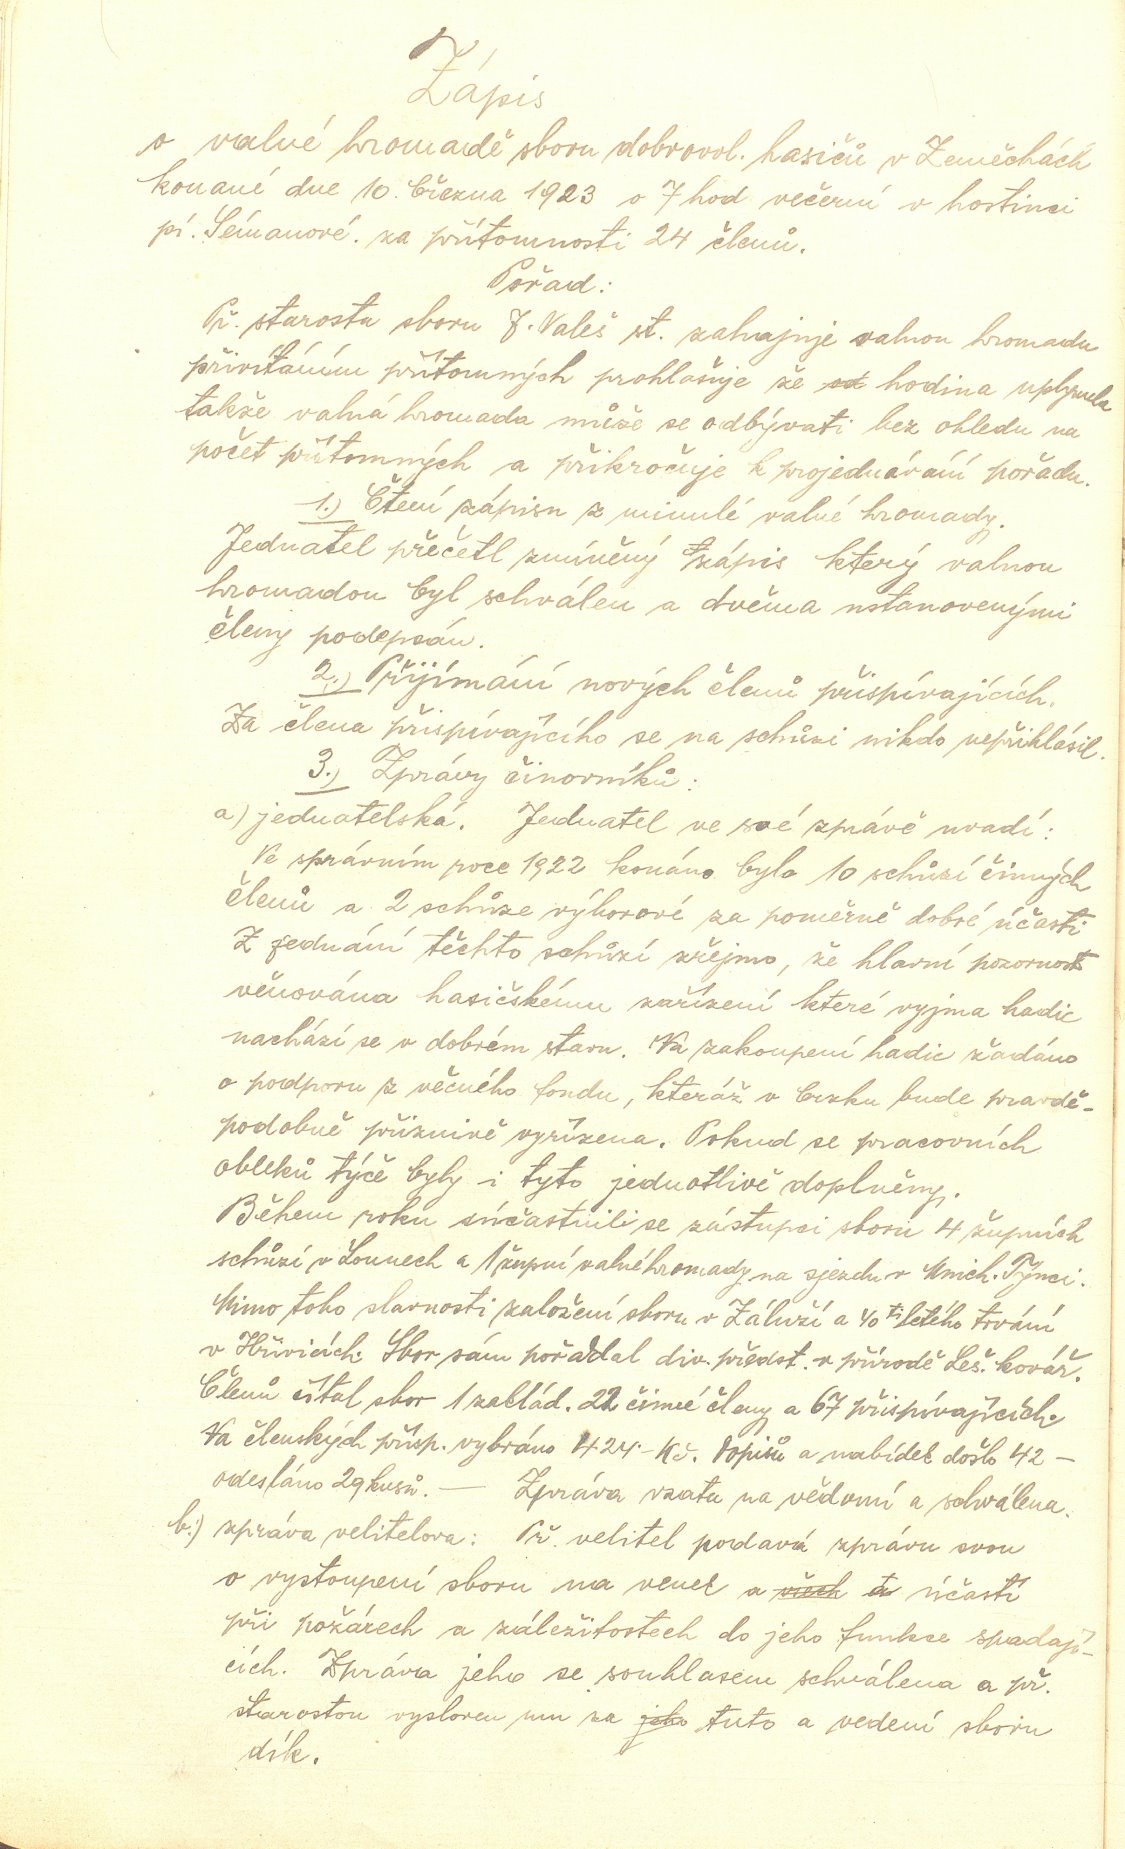 Zápis
o valné hromadě sboru dobrovol. hasičů v Zeměchách
konané dne 10. března 1923 o 7 hod večerní v hostinci
pí. Sémanové. za přítomnosti 24 členů.
Pořad:
Př. starosta sboru J. Valeš st. zahajuje valnou hromadu
přivítáním přítomných prohlašuje že hodina uplynula
takže valná hromada může se odbývati bez ohledu na
počet přítomných a přikročuje k projednávání pořadu.
1.) Čtení zápisu z minulé valné hromady.
Jednatel přečetl zmíněný zápis který valnou
hromadou byl schválen a dvěma ustanovenými
členy podepsán.
2.) Přijímání nových členů přispívajících.
Za člena přispívajícího se na schůzi nikdo nepřihlásil.
3.) Zprávy činovníků:
a) jednatelská. Jednatel ve své zprávě uvadí:
Ve správním roce 1922 konáno bylo 10 schůzí činných
členů a 2 schůze výborové za poměrně dobré účasti
Z jednání těchto schůzí zřejmo, že hlavní pozornost
věnována hasičskému zařízení které vyjma hadic
nachází se v dobrém stavu. Na zakoupení hadic žádáno
o podporu z věcného fondu, kteráž v brzku bude pravdě-
podobně příznivě vyřízena. Pokud se pracovních
obleků týče byly i tyto jednotlivě doplněny.
Během roku súčastnili se zástupci sboru 4 župních
schůzí v Lounech a 1 župní valné hromady na sjezdu v Mnich. Týnci.
Mimo toho slavnosti založení sboru v Záluží a 40 ti letého trvání
v Hřivicích. Sbor sám pořádal div. předst. v přírodě Leš. kovář.
Členů čítal sbor 1 zaklád. 22 činné členy a 67 přispívajících.
Na členských přísp. vybráno 424.- Kč. Dopisů a nabídek došlo 42 –
odesláno 29 kusů. — Zpráva vzata na vědomí a schválena.
b.) zpráva velitelova: Př. velitel podavá zprávu svou
o vystoupení sboru na venek a <del>všech</del> a účasti
při požárech a záležitostech do jeho funkce spadají-
cích. Zpráva jeho se souhlasem schválena a př.
starostou vysloven mu za <del>jeho</del> tuto a vedení sboru
dík.